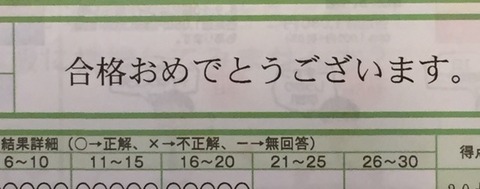 合格おめでとうございます。
結果詳細（○→正解、×→不正解、ー→無回答）
6～10 11～15 16～20 21～25 26～30 得点
○○○○○ ○○○○○ ○○○○○